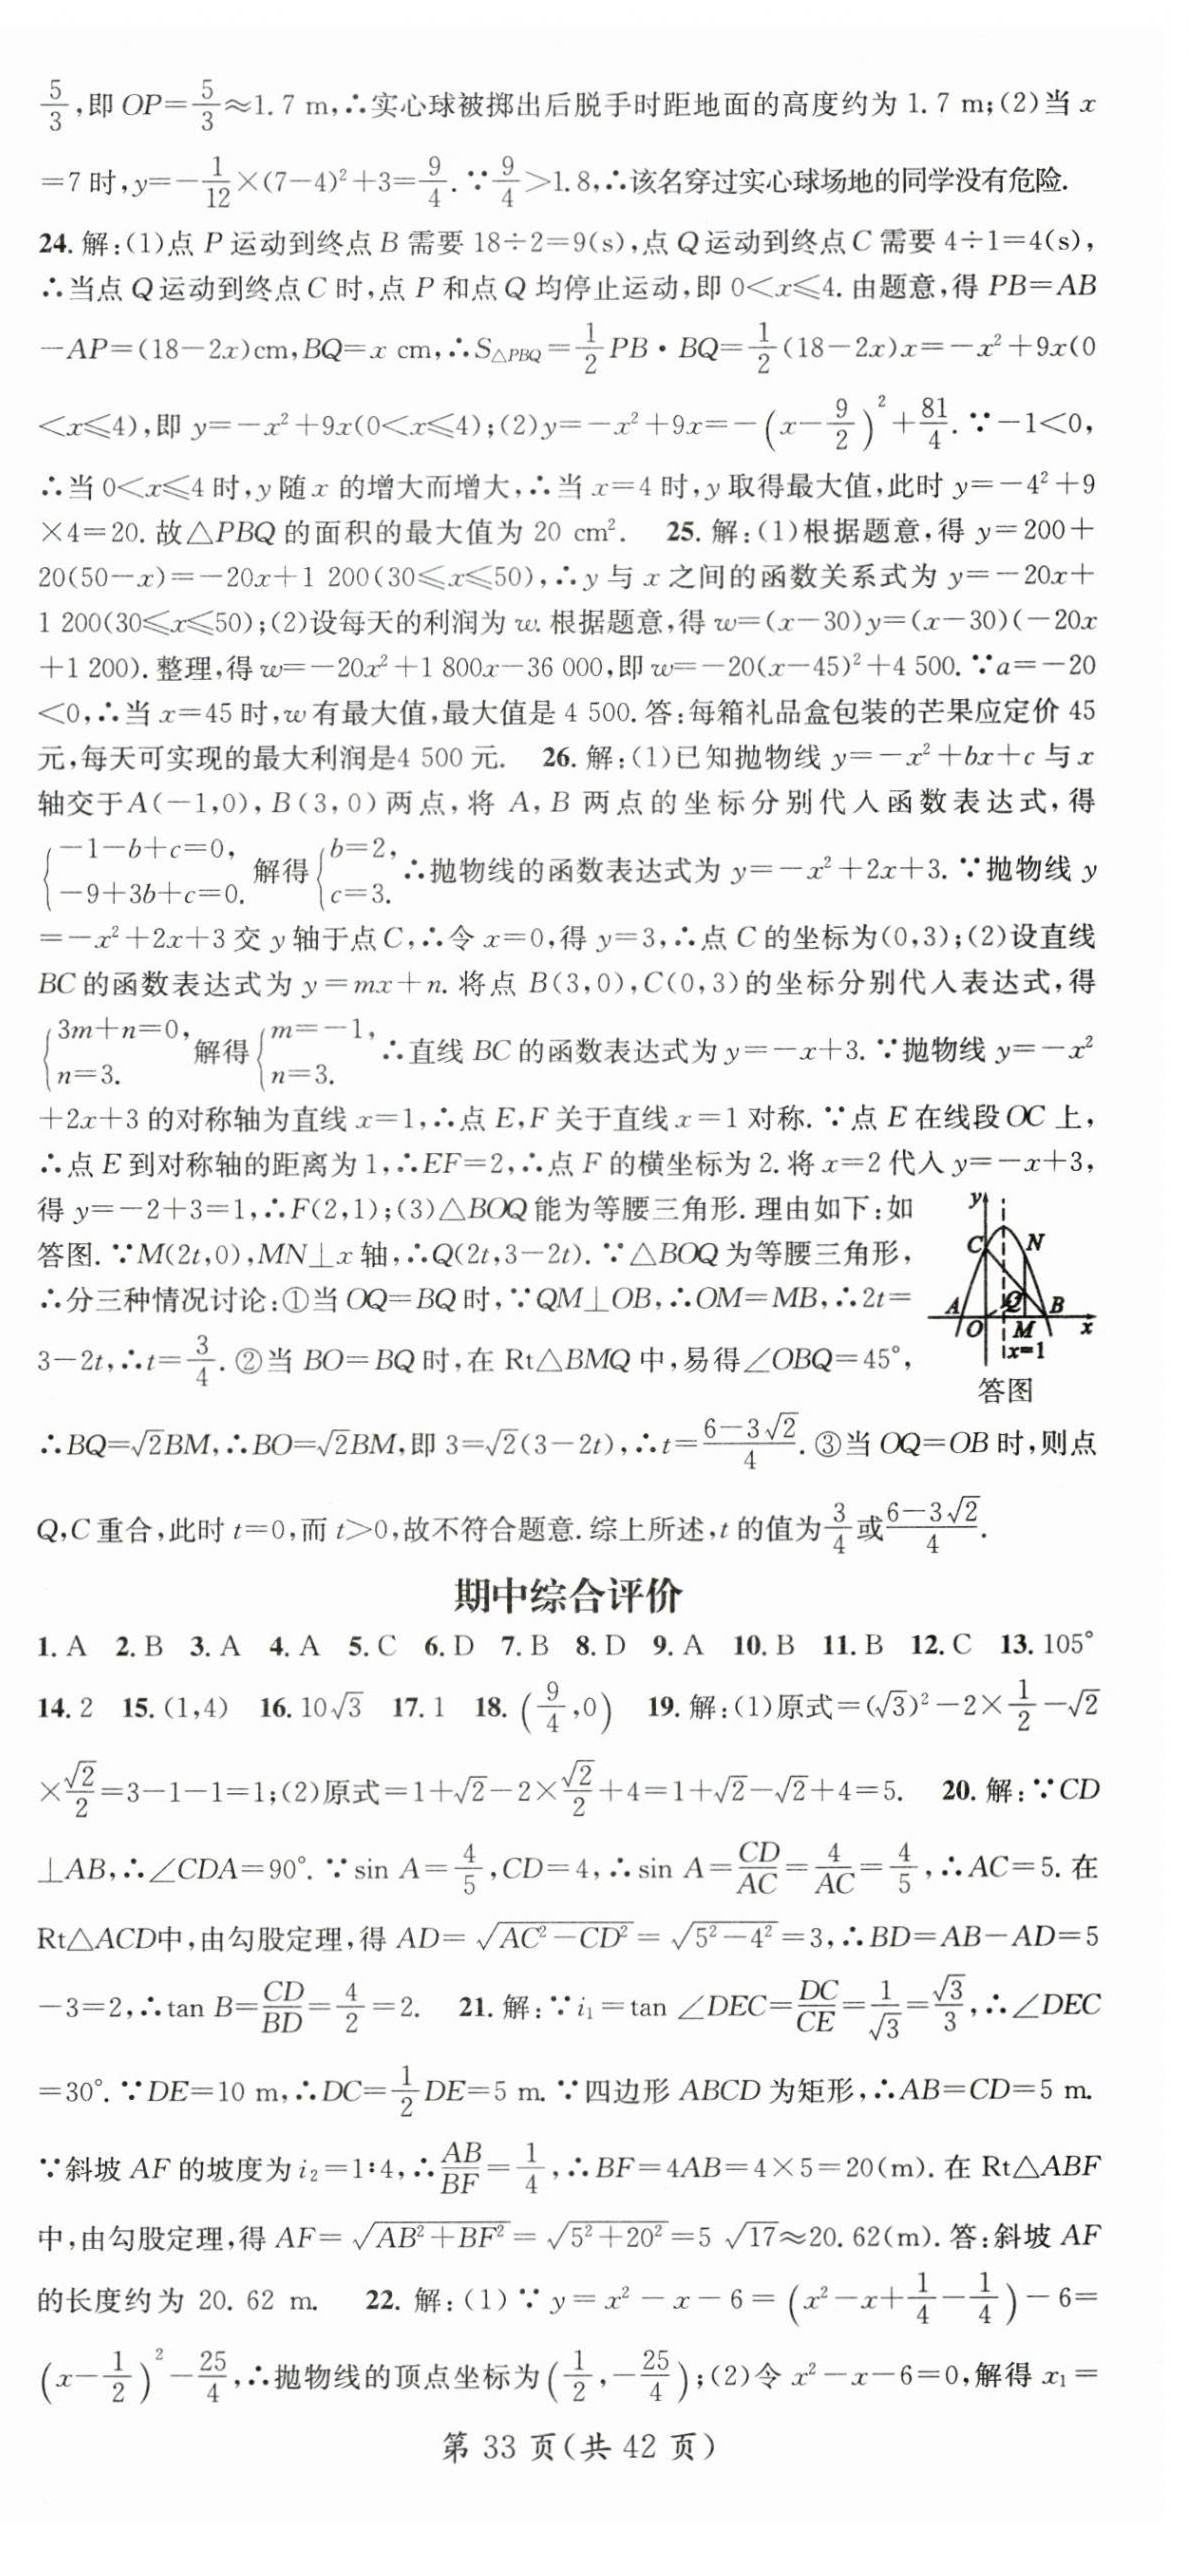 5/3,即 OP=5/3≈1.7 m,∴实心球被掷出后脱手时距地面的高度约为 1.7 m;(2)当 x
=7 时,y=-1/12×(7-4)²+3=9/4.∵9/4>1.8,∴该名穿过实心球场地的同学没有危险.
24.解:(1)点 P 运动到终点 B 需要 18÷2=9(s),点 Q 运动到终点 C 需要 4÷1=4(s),
∴当点 Q 运动到终点 C 时,点 P 和点 Q 均停止运动,即 0<x⩽4.由题意,得 PB=AB
-AP=(18-2x)cm,BQ=x cm,∴S△PBQ=1/2 PB·BQ=1/2(18-2x)x=-x²+9x(0
<x⩽4),即 y=-x²+9x(0<x⩽4);(2)y=-x²+9x=-(x-9/2)²+81/4.∵-1<0,
∴当 0<x⩽4 时,y 随 x 的增大而增大,∴当 x=4 时,y 取得最大值,此时 y=-4²+9
×4=20.故△PBQ 的面积的最大值为 20 cm². 25.解:(1)根据题意,得 y=200+
20(50-x)=-20x+1 200(30⩽x⩽50),∴y 与 x 之间的函数关系式为 y=-20x+
1 200(30⩽x⩽50);(2)设每天的利润为 w.根据题意,得 w=(x-30)y=(x-30)(-20x
+1 200).整理,得 w=-20x²+1 800x-36 000,即 w=-20(x-45)²+4 500.∵a=-20
<0,∴当 x=45 时,w 有最大值,最大值是 4 500.答:每箱礼品盒包装的芒果应定价 45
元,每天可实现的最大利润是4 500 元. 26.解:(1)已知抛物线 y=-x²+bx+c 与 x
轴交于 A(-1,0),B(3,0)两点,将 A,B 两点的坐标分别代入函数表达式,得
{-1-b+c=0, -9+3b+c=0. 解得{b=2, c=3. ∴抛物线的函数表达式为 y=-x²+2x+3.∵抛物线 y
=-x²+2x+3 交 y 轴于点 C,∴令 x=0,得 y=3,∴点 C 的坐标为(0,3);(2)设直线
BC 的函数表达式为 y=mx+n.将点 B(3,0),C(0,3)的坐标分别代入表达式,得
{3m+n=0, n=3. 解得{m=-1, n=3. ∴直线 BC 的函数表达式为 y=-x+3.∵抛物线 y=-x²
+2x+3 的对称轴为直线 x=1,∴点 E,F 关于直线 x=1 对称.∵点 E 在线段 OC 上,
∴点 E 到对称轴的距离为 1,∴EF=2,∴点 F 的横坐标为 2.将 x=2 代入 y=-x+3,
得 y=-2+3=1,∴F(2,1);(3)△BOQ 能为等腰三角形.理由如下:如
答图.∵M(2t,0),MN⊥x 轴,∴Q(2t,3-2t).∵△BOQ 为等腰三角形,
∴分三种情况讨论:①当 OQ=BQ 时,∵QM⊥OB,∴OM=MB,∴2t=
3-2t,∴t=3/4.②当 BO=BQ 时,在 Rt△BMQ 中,易得∠OBQ=45°,
y
C
N
A
Q
B
O
M
x
x=1
答图
∴BQ=√2BM,∴BO=√2BM,即 3=√2(3-2t),∴t=(6-3√2)/4.③当 OQ=OB 时,则点
Q,C 重合,此时 t=0,而 t>0,故不符合题意.综上所述,t 的值为3/4或(6-3√2)/4.
期中综合评价
1.A 2.B 3.A 4.A 5.C 6.D 7.B 8.D 9.A 10.B 11.B 12.C 13.105°
14.2 15.(1,4) 16.10√3 17.1 18.(9/4,0) 19.解:(1)原式=(√3)²-2×1/2-√2
×√2/2=3-1-1=1;(2)原式=1+√2-2×√2/2+4=1+√2-√2+4=5. 20.解:∵CD
⊥AB,∴∠CDA=90°.∵sin A=4/5,CD=4,∴sin A=CD/AC=4/AC=4/5,∴AC=5.在
Rt△ACD中,由勾股定理,得 AD=√(AC²-CD²)=√(5²-4²)=3,∴BD=AB-AD=5
-3=2,∴tan B=CD/BD=4/2=2. 21.解:∵i₁=tan ∠DEC=DC/CE=1/√3=√3/3,∴∠DEC
=30°.∵DE=10 m,∴DC=1/2 DE=5 m.∵四边形 ABCD 为矩形,∴AB=CD=5 m.
∵斜坡 AF 的坡度为 i₂=1∶4,∴AB/BF=1/4,∴BF=4AB=4×5=20(m).在 Rt△ABF
中,由勾股定理,得 AF=√(AB²+BF²)=√(5²+20²)=5√17≈20.62(m).答:斜坡 AF
的长度约为 20.62 m. 22.解:(1)∵y=x²-x-6=(x²-x+1/4-1/4)-6=
(x-1/2)²-25/4,∴抛物线的顶点坐标为(1/2,-25/4);(2)令 x²-x-6=0,解得 x₁=
第 33 页(共 42 页)